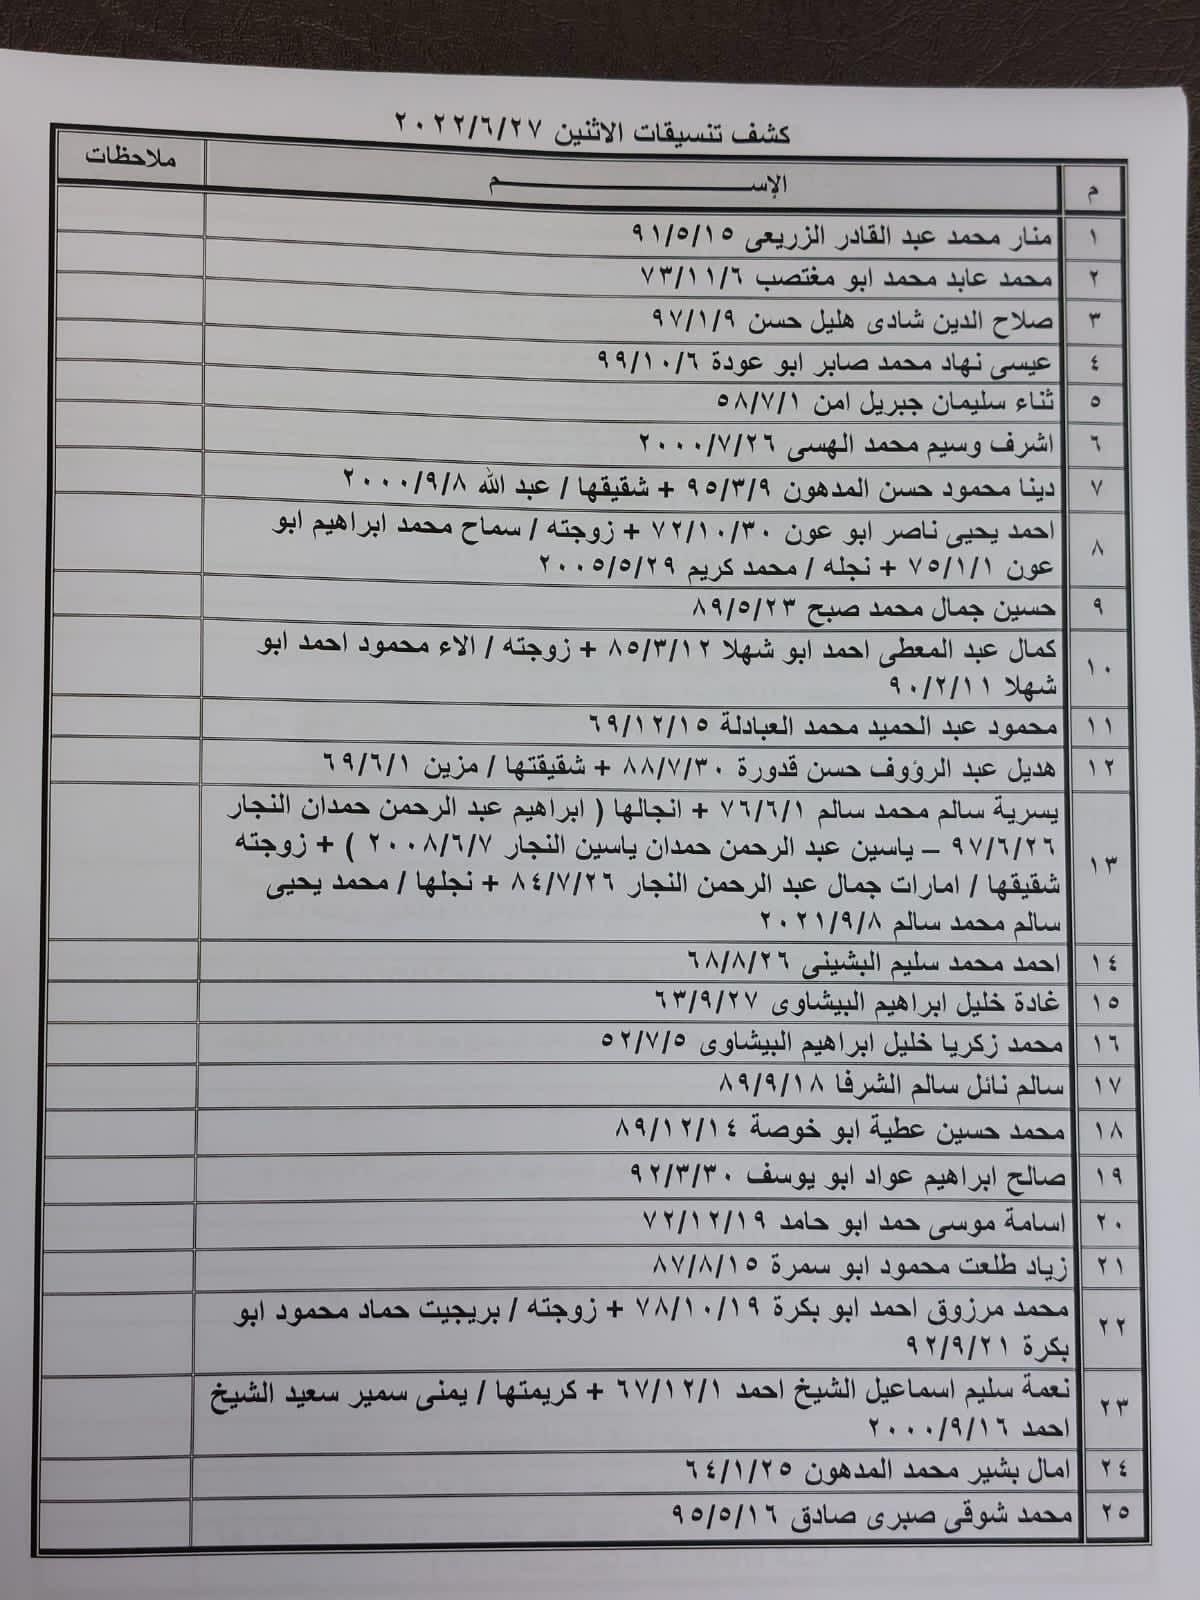 كشف تنسيقات الاثنين ٢٠٢٢/٦/٢٧
م الإســـــــــم ملاحظات
١ منار محمد عبد القادر الزريعى ٩١/٥/١٥
٢ محمد عابد محمد ابو مغتصب ٧٣/١١/٦
٣ صلاح الدين شادى هليل حسن ٩٧/١/٩
٤ عيسى نهاد محمد صابر ابو عودة ٩٩/١٠/٦
٥ ثناء سليمان جبريل امن ٥٨/٧/١
٦ اشرف وسيم محمد الهسى ٢٠٠٠/٧/٢٦
٧ دينا محمود حسن المدهون ٩٥/٣/٩ + شقيقها / عبد الله ٢٠٠٠/٩/٨
٨ احمد يحيى ناصر ابو عون ٧٢/١٠/٣٠ + زوجته / سماح محمد ابراهيم ابو
عون ٧٥/١/١ + نجله / محمد كريم ٢٠٠٥/٥/٢٩
٩ حسين جمال محمد صبح ٨٩/٥/٢٣
١٠ كمال عبد المعطى احمد ابو شهلا ٨٥/٣/١٢ + زوجته / الاء محمود احمد ابو
شهلا ٩٠/٢/١١
١١ محمود عبد الحميد محمد العبادلة ٦٩/١٢/١٥
١٢ هديل عبد الرؤوف حسن قدورة ٨٨/٧/٣٠ + شقيقتها / مزين ٦٩/٦/١
١٣ يسرية سالم محمد سالم ٧٦/٦/١ + انجالها ( ابراهيم عبد الرحمن حمدان النجار
٩٧/٦/٢٦ – ياسين عبد الرحمن حمدان ياسين النجار ٢٠٠٨/٦/٧ ) + زوجته
شقيقها / امارات جمال عبد الرحمن النجار ٨٤/٧/٢٦ + نجلها / محمد يحيى
سالم محمد سالم ٢٠٢١/٩/٨
١٤ احمد محمد سليم البشينى ٦٨/٨/٢٦
١٥ غادة خليل ابراهيم البيشاوى ٦٣/٩/٢٧
١٦ محمد زكريا خليل ابراهيم البيشاوى ٥٢/٧/٥
١٧ سالم نائل سالم الشرفا ٨٩/٩/١٨
١٨ محمد حسين عطية ابو خوصة ٨٩/١٢/١٤
١٩ صالح ابراهيم عواد ابو يوسف ٩٢/٣/٣٠
٢٠ اسامة موسى حمد ابو حامد ٧٢/١٢/١٩
٢١ زياد طلعت محمود ابو سمرة ٨٧/٨/١٥
٢٢ محمد مرزوق احمد ابو بكرة ٧٨/١٠/١٩ + زوجته / بريجيت حماد محمود ابو
بكرة ٩٢/٩/٢١
٢٣ نعمة سليم اسماعيل الشيخ احمد ٦٧/١٢/١ + كريمتها / يمنى سمير سعيد الشيخ
احمد ٢٠٠٠/٩/١٦
٢٤ امال بشير محمد المدهون ٦٤/١/٢٥
٢٥ محمد شوقى صبرى صادق ٩٥/٥/١٦